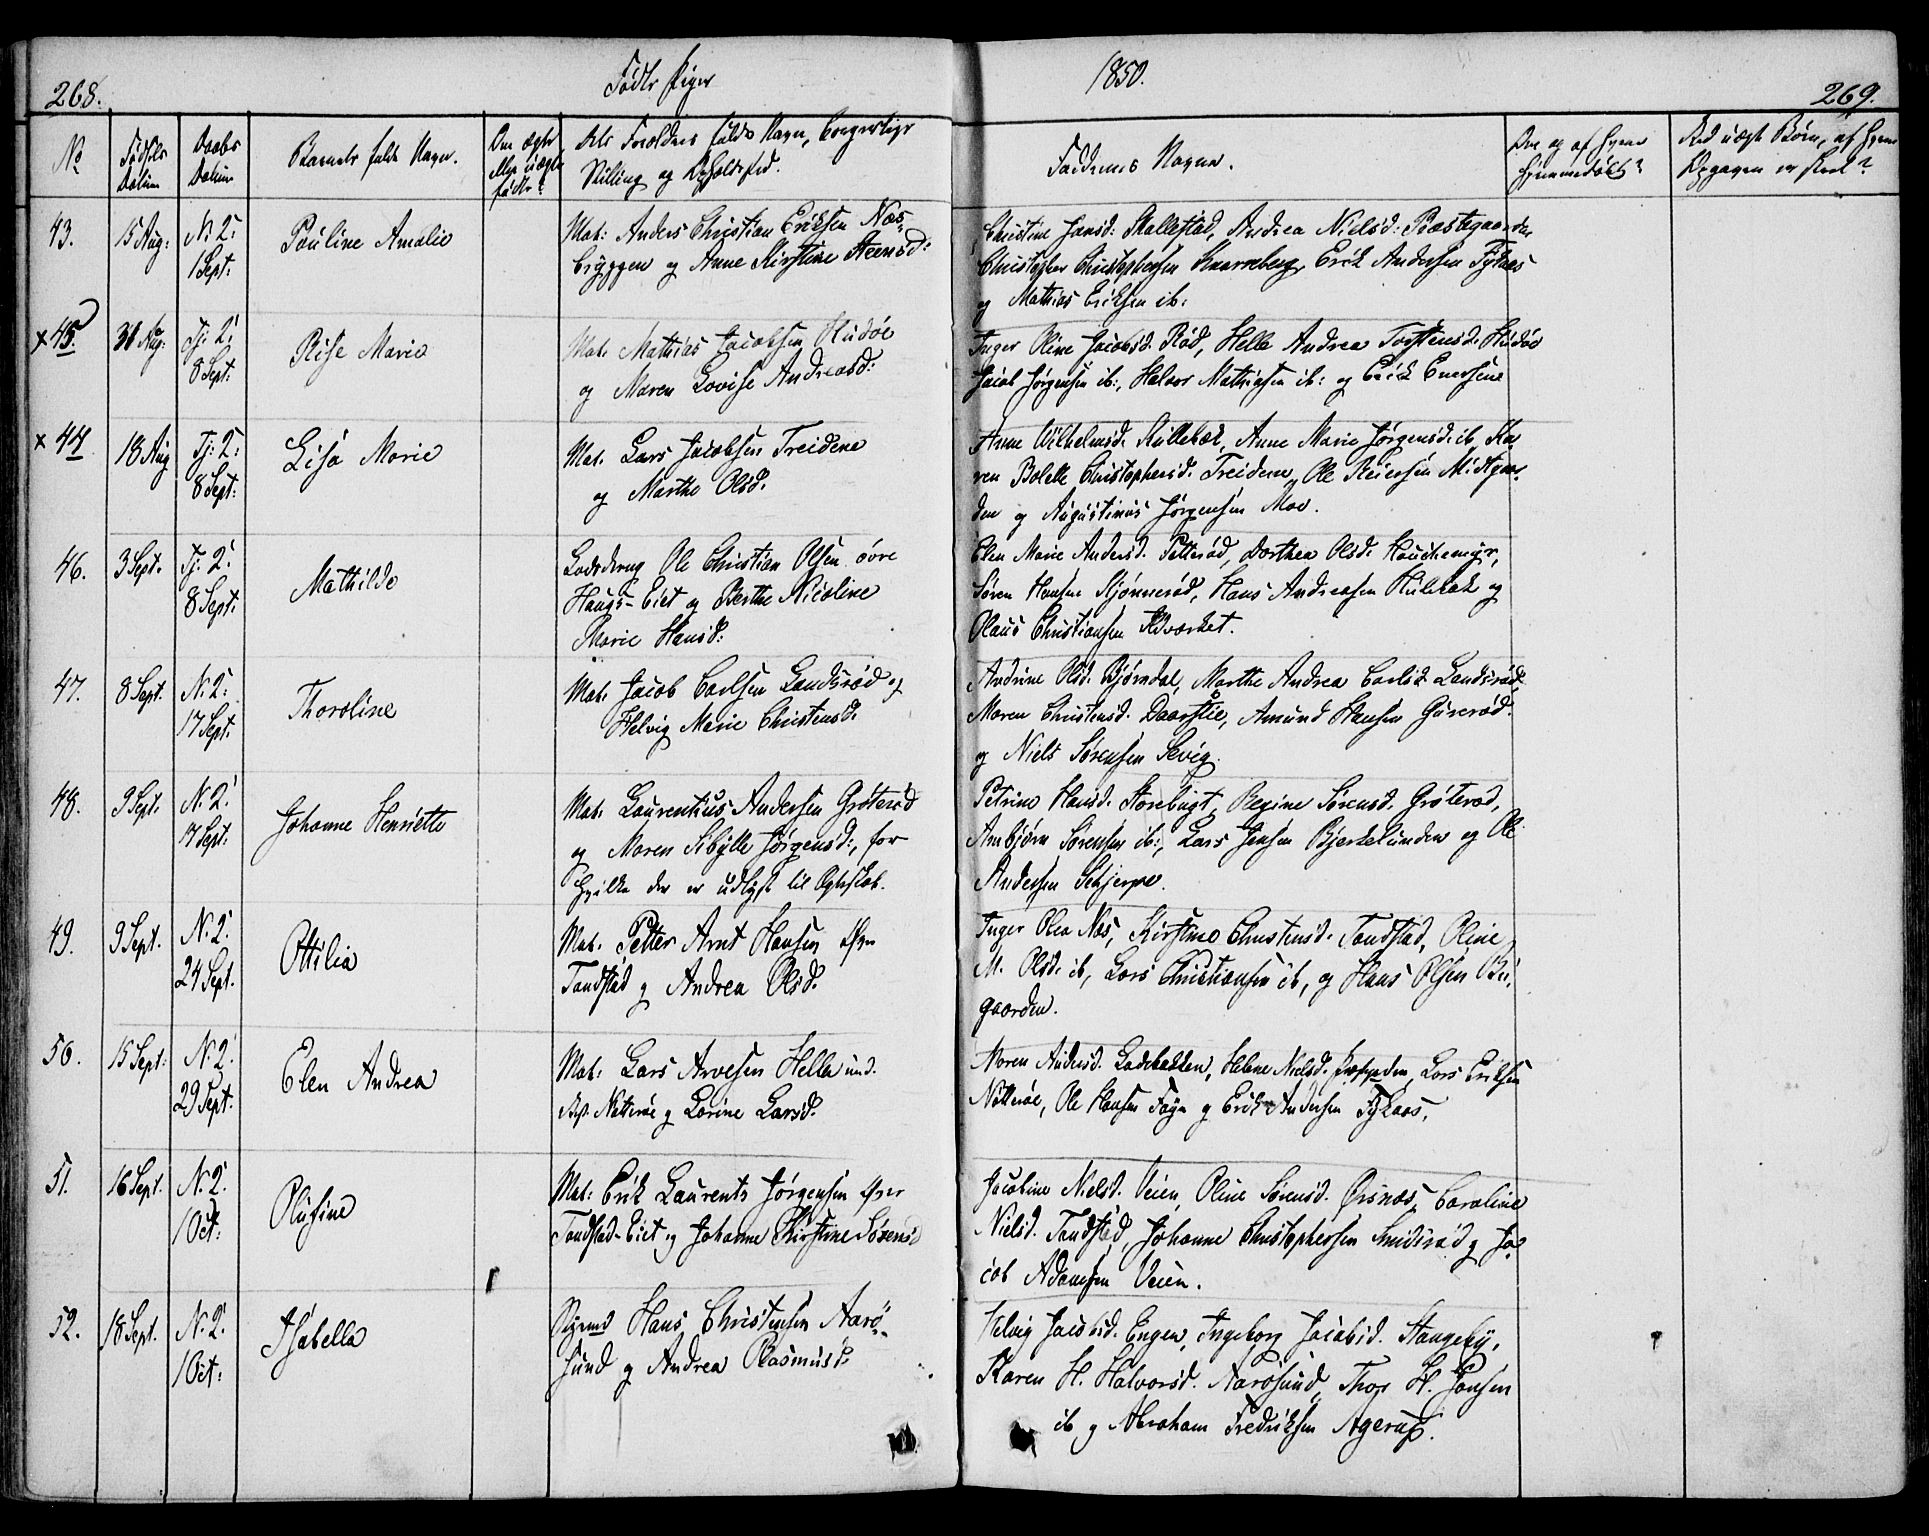 268.
Fødte Piger
1850.
269.
No
Fødsels Datum
Daabs Datum
Barnets fulde Navn.
Om ægte eller uægte født?
Forældres fulde Navn, Borgerlige
Stilling og Opholdssted.
Faddernes Navne.
Om og af hvem hjemmedøbt?
Ved uægte Børn, af hvem
Opgaven er skeet?
43.
15 Aug:
N: 2:
1 Sept:
Pauline Amalie
Mat: Anders Christian Eriksen Næs-
bryggen og Anne Kirstine Steensd:
Christine Jansd: Skallestad, Andrea Nielsd: Præstegaarden
Christopher Christophersen Knarreberg, Erik Andersen
og Mathias Eriksen ib:
x 45.
31 Aug:
Tj: 2'
8 Sept:
Risе Marie
Mat: Mathias Jacobsen Hudøe
og Maren Lovise Andreasd:
Inger Oline Jacobsd. Rød, Helle Andrea Torstensd. Hudøe
Jacob Jørgensen ib:, Halvor Mathiasen ib: og Erik
x 44
18 Aug
Tj: 2:
8 Sept:
Lisa Marie
Mat. Lars Jacobsen Treidene
og Marthe Olsd.
Anne Wilhelmsd. Anne Marie Jørgensd. ib, Ka
ren Bolelle Christophersd. Treidene, Ole Reiersen Midtgaar-
den og Augustinus Jørgensen Moe.
46.
3 Sept.
Tj: 2'
8 Sept:
Mathilde
Ole Christian Olsen øvre
Haugs-Eiet og Berthe Nicoline
Marie Hansd:
Elen Marie Andersd. Petterød, Dorthea Olsd.
Søren Hansen Hans Andreasen Hulebak og
Olaus Christiansen
47.
8 Sept.
N: 2:
17 Sept:
Thoroline
Mat: Jacob Carlsen Landsrød og
Helvig Marie Christensd.
Andrine Olsd. Bjørndal, Marthe Andrea Carlsd. Landsrød,
Maren Christensd. Amund Hansen
og Niels Sørensen Sevig.
48.
9 Sept.
N: 2'
17 Sept:
Johanne Henriette
Mat: Laurentius Andersen Grøterød
og Maren Sibylle Jørgensd:, for
hvilke der er udlyst til Ægteskab.
Petrine Hansd. Storebugt, Regine Sørensd. Grøterød,
Arnbjørn Sørensen ib:, Lars Jensen Bjerkelunden og Ole
Andersen Schjerpe.
49.
9 Sept.
N: 2'
24 Sept.
Ottilia
Mat. Petter Arnt Hansen øvre
Tandstad og Andrea Olsd.
Inger Olea Næs, Kirstine Christensd. Tandstad, Oline
M. Olsd. ib, Lars Christiansen ib, og Hans Olsen
gaarden.
50.
15 Sept:
N: 2'
29 Sept:
Elen Andrea
Mat: Lars Arvesen Hella
Nøtterøe og Lorine Larsd.
Maren Andersd. Helene Nielsd. Lars Eriksen
Nøtterøe, Ole Hansen Føyn og Erik Andersen
51.
16 Sept.
N: 2'
1 Oct:
Olufine
Mat: Erik Laurents Jørgensen øvre
Tandstad-Eiet og Johanne Kirstine Sørensd
Jacobine Nielsd. Veien, Oline Sørensd. Ørsnæs, Caroline
Nielsd. Tandstad, Johanne Christophersen Smidsrød og Ja
cob Adamsen Veien.
52.
18 Sept.
N: 2'
1 Oct:
Isabella
Hans Christensen Aarø-
sund og Andrea Rasmusd.
Helvig Jacobsd. Engen, Ingeborg Jacobsd. Stangeby,
Karen H. Halvorsd. Aarøsund, Thor H. Jansen
ib og Abraham Fredriksen Agerup.